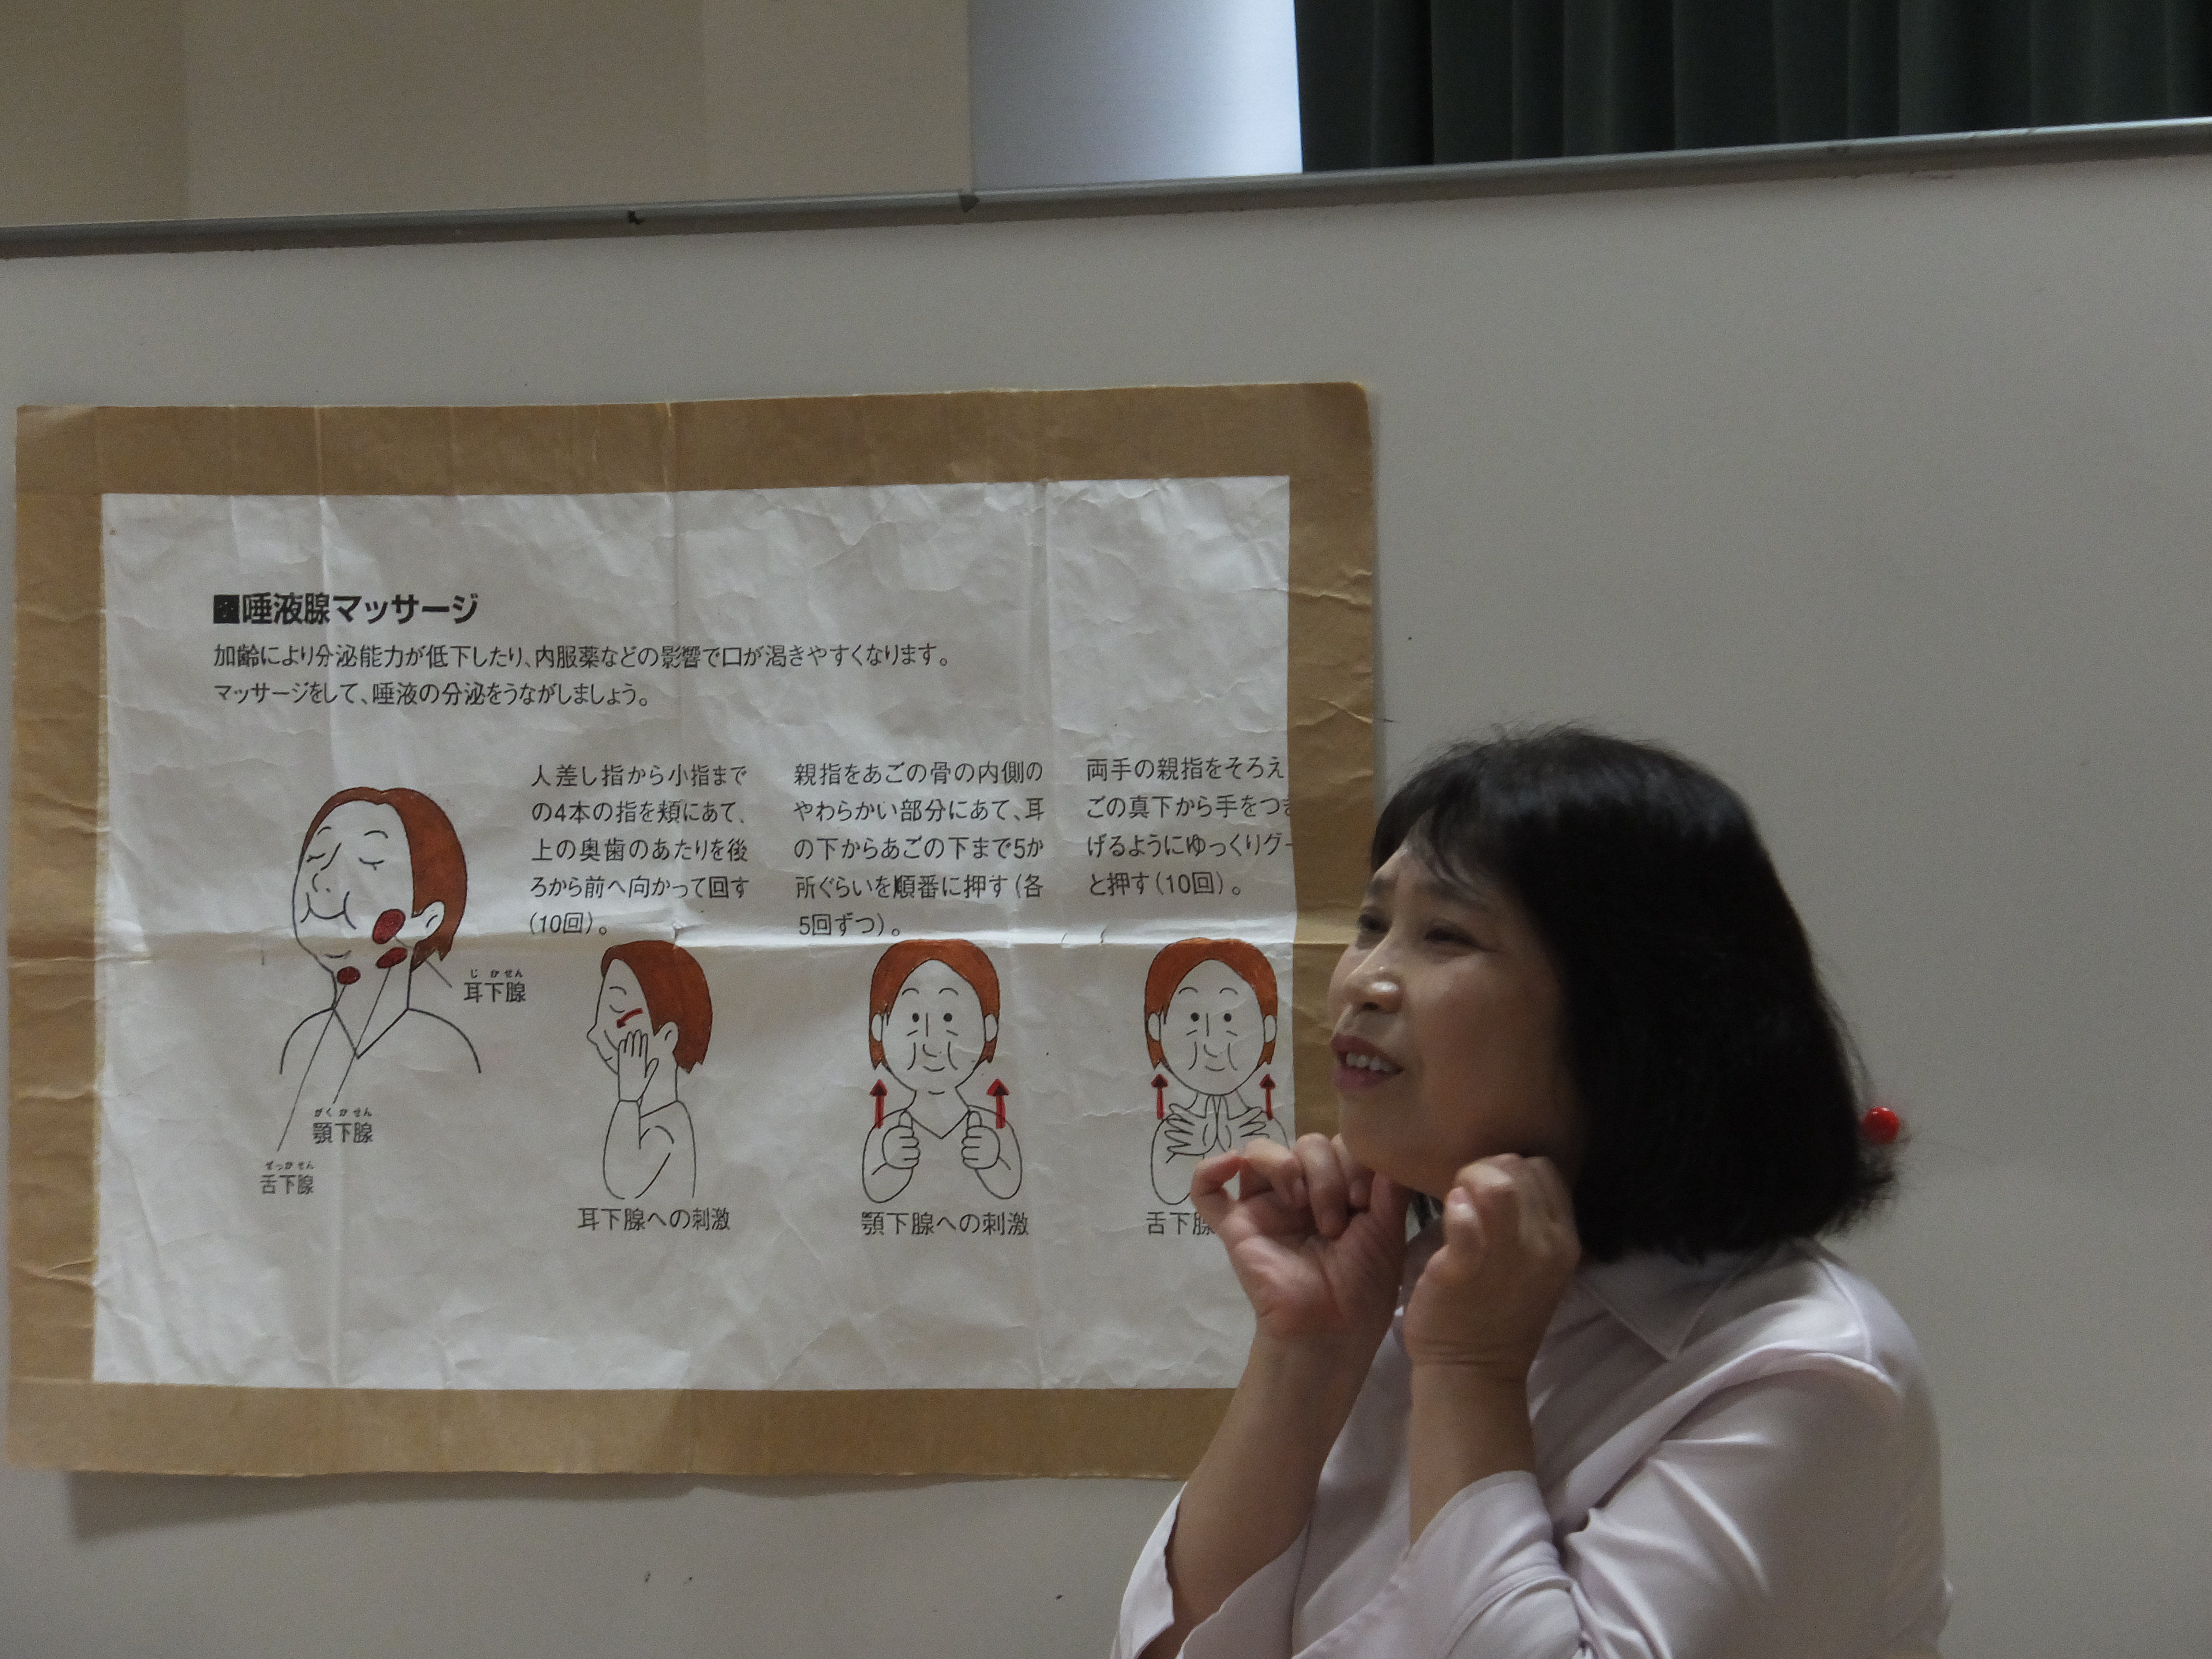 ■唾液腺マッサージ
加齢により分泌能力が低下したり、内服薬などの影響で口が渇きやすくなります。
マッサージをして、唾液の分泌をうながしましょう。
人差し指から小指まで
の4本の指を頬にあて、
上の奥歯のあたりを後
ろから前へ向かって回す
(10回)。
親指をあごの骨の内側の
やわらかい部分にあて、耳
の下からあごの下まで5か
所ぐらいを順番に押す(各
5回ずつ)。
両手の親指をそろえ
ごの真下から手をつき
げるようにゆっくりグー
と押す(10回)。
じかせん
耳下腺
がくかせん
顎下腺
ぜっかせん
舌下腺
耳下腺への刺激
顎下腺への刺激
舌下腺